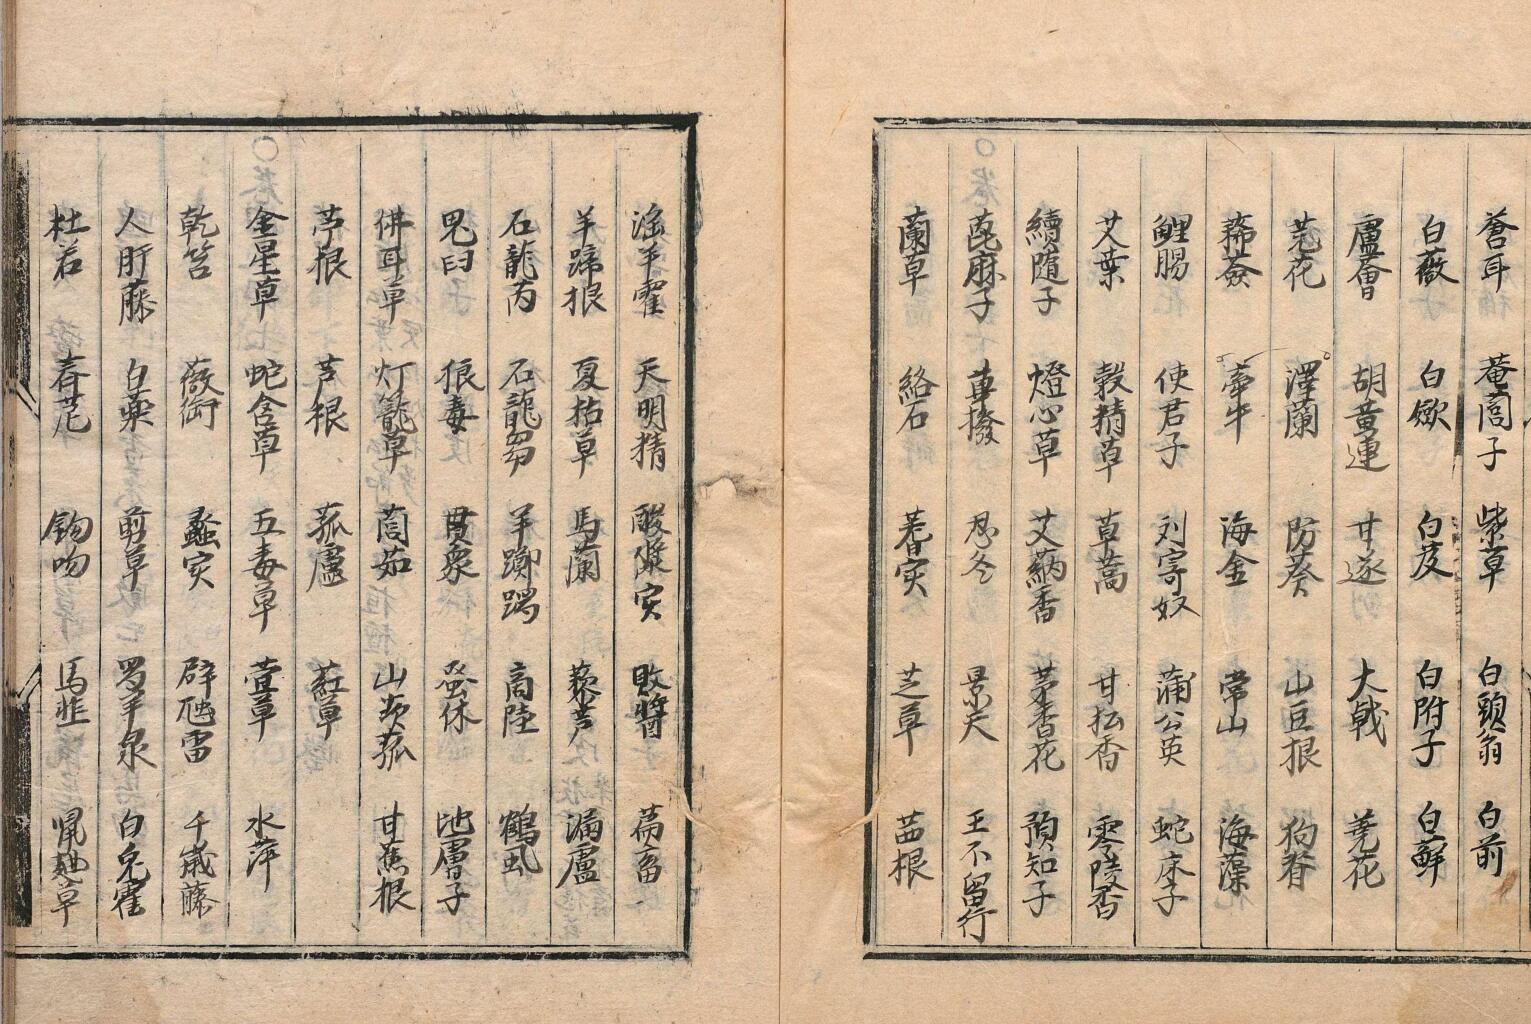 蒼耳 菴䕡子 紫草 白頭翁 白前
白薇 白歛 白芨 白附子 白鮮
盧薈 胡黃連 甘遂 大戟 蕘花
芫花 澤蘭 防葵 山豆根 狗脊
豨薟 牽牛 海金 常山 海藻
鯉腸 使君子 刘寄奴 蒲公英 蛇床子
艾葉 穀精草 草蒿 甘松香 零陵香
續随子 燈心草 艾蒳香 茅香花 預知子
萞麻子 蓽撥 忍冬 景天 王不留行
蘭草 絡石 蓍实 芝草 茜根
滛羊霍 天明精 酸漿实 敗醬 萹畜
羊蹄根 夏枯草 馬蘭 藜芦 漏盧
石龍芮 石龍芻 羊躑躅 商陸 鶴虱
鬼臼 狼毒 貫衆 蚤休 地膚子
佛耳草 灯籠草 䕡茹 山茨菰 甘蕉根
苧根 芦根 菰蘆 葒草
金星草 蛇含草 五毒草 萱草 水萍
乾筎 薇銜 蠡实 辟虺雷 千歲藤
人肝藤 白藥 剪草 署羊泉 白兔霍
杜若 春茊 鉤吻 馬韭 草